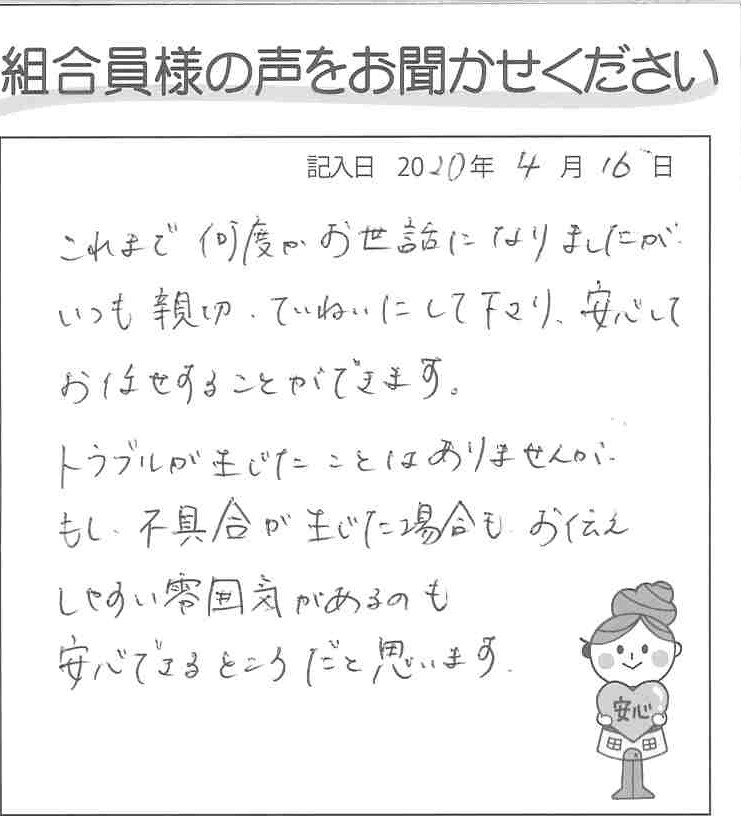 組合員様の声をお聞かせください
記入日 2020年 4月 16日
これまで何度かお世話になりましたが、
いつも親切、ていねいにして下さり、安心して
お任せすることができます。
トラブルが生じたことはありませんが、
もし、不具合が生じた場合も、お伝え
しやすい雰囲気があるのも
安心できるところだと思います。
安心